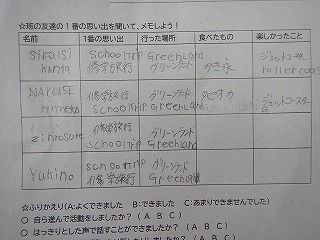 ☆班の友達の1番の思い出を聞いて、メモしよう!
名前 1番の思い出 行った場所 食べたもの 楽しかったこと
schooltrip Greenland ジェットコースター
修学旅行 グリーンランド かき氷 rollercoas
修学旅行 グリーンランド タピオカ ジェットコースター
schooltrip Greenland
zinnosuke 修学旅行 グリーンランド
schooltrip Greenland
Yukino schooltrip グリーンランド
修学旅行 Greenland
☆ふりかえり(A:よくできました B:できました C:あまりできませんでした)
○ 自ら進んで活動をしましたか? (A B C)
○ はっきりとした声で話すことができましたか? (A B C)